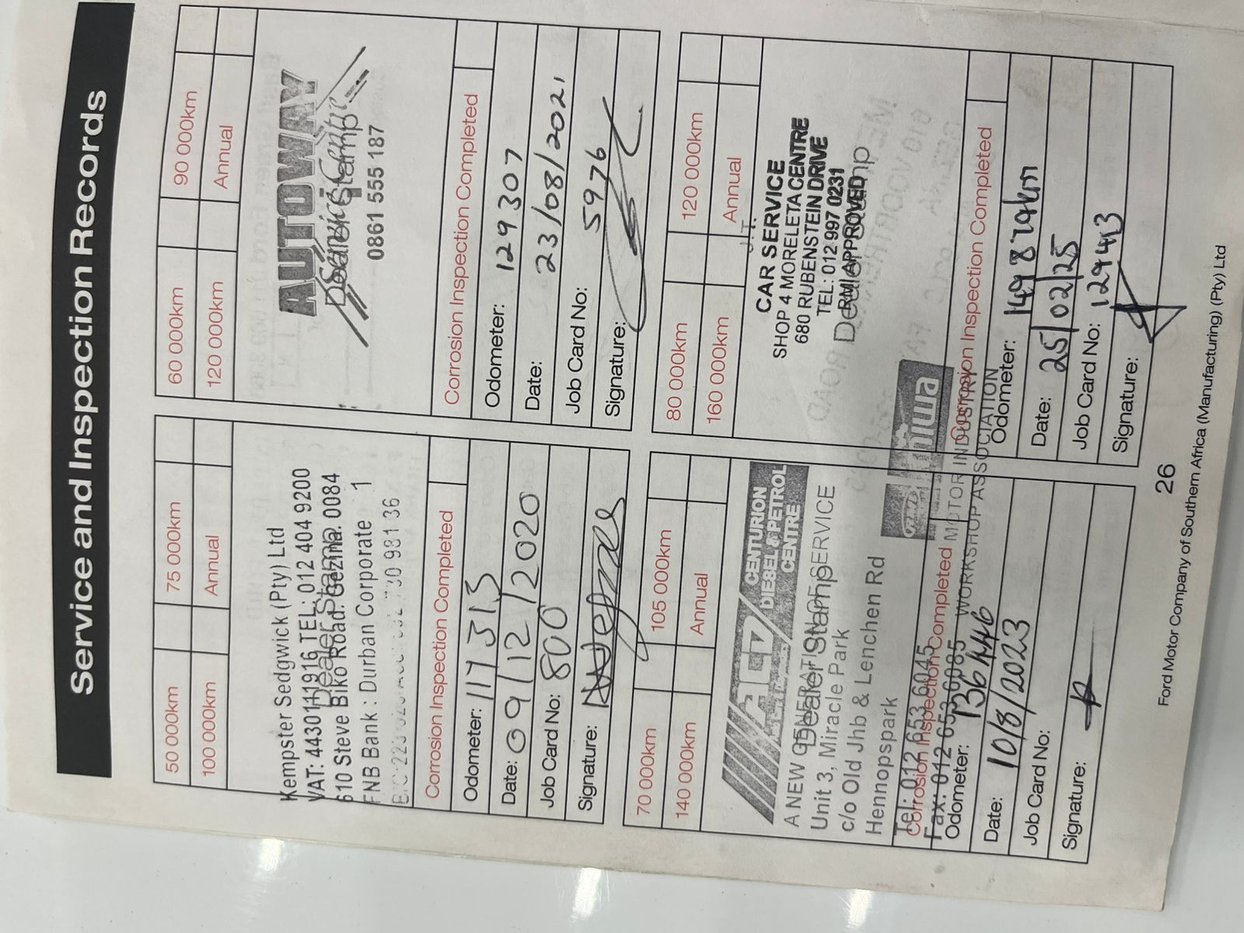 Service and Inspection Records
50 000km
75 000km
100 000km
Annual
Kempster Sedgwick (Pty) Ltd
VAT: 4430111916 TEL: 012 404 9200
Dealer Stamp
610 Steve Biko Road. Gezina. 0084
FNB Bank : Durban Corporate 1
Corrosion Inspection Completed
Odometer: 117313
Date: 09/12/2020
Job Card No: 800
Signature:
60 000km
90 000km
120 000km
Annual
AUTOWAY
Service Centre
Dealer Stamp
0861 555 187
Corrosion Inspection Completed
Odometer: 129307
Date: 23/08/2021
Job Card No: 5976
Signature:
70 000km
105 000km
140 000km
Annual
CENTURION
DIESEL & PETROL
CENTRE
A NEW GENERATION OF SERVICE
Dealer Stamp
Unit 3, Miracle Park
c/o Old Jhb & Lenchen Rd
Hennopspark
Tel: 012 653 6045
Corrosion Inspection Completed
Fax: 012 653 6085
miwa
MOTOR INDUSTRY
WORKSHOP ASSOCIATION
Odometer: 136446
Date: 10/8/2023
Job Card No:
Signature:
80 000km
120 000km
160 000km
Annual
J.T.
CAR SERVICE
SHOP 4 MORELETA CENTRE
680 RUBENSTEIN DRIVE
TEL: 012 997 0231
RMI APPROVED
Dealer Stamp
Corrosion Inspection Completed
Odometer: 149879km
Date: 25/02/25
Job Card No: 129413
Signature:
26
Ford Motor Company of Southern Africa (Manufacturing) (Pty) Ltd